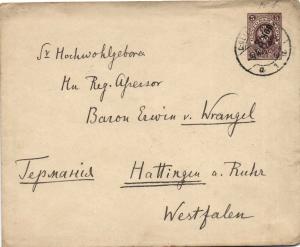 Sr Hochwohlgeboren
Hn Reg. Assessor
Baron Erwin v. Wrangel
Германiя
Hattingen a. Ruhr
Westfalen